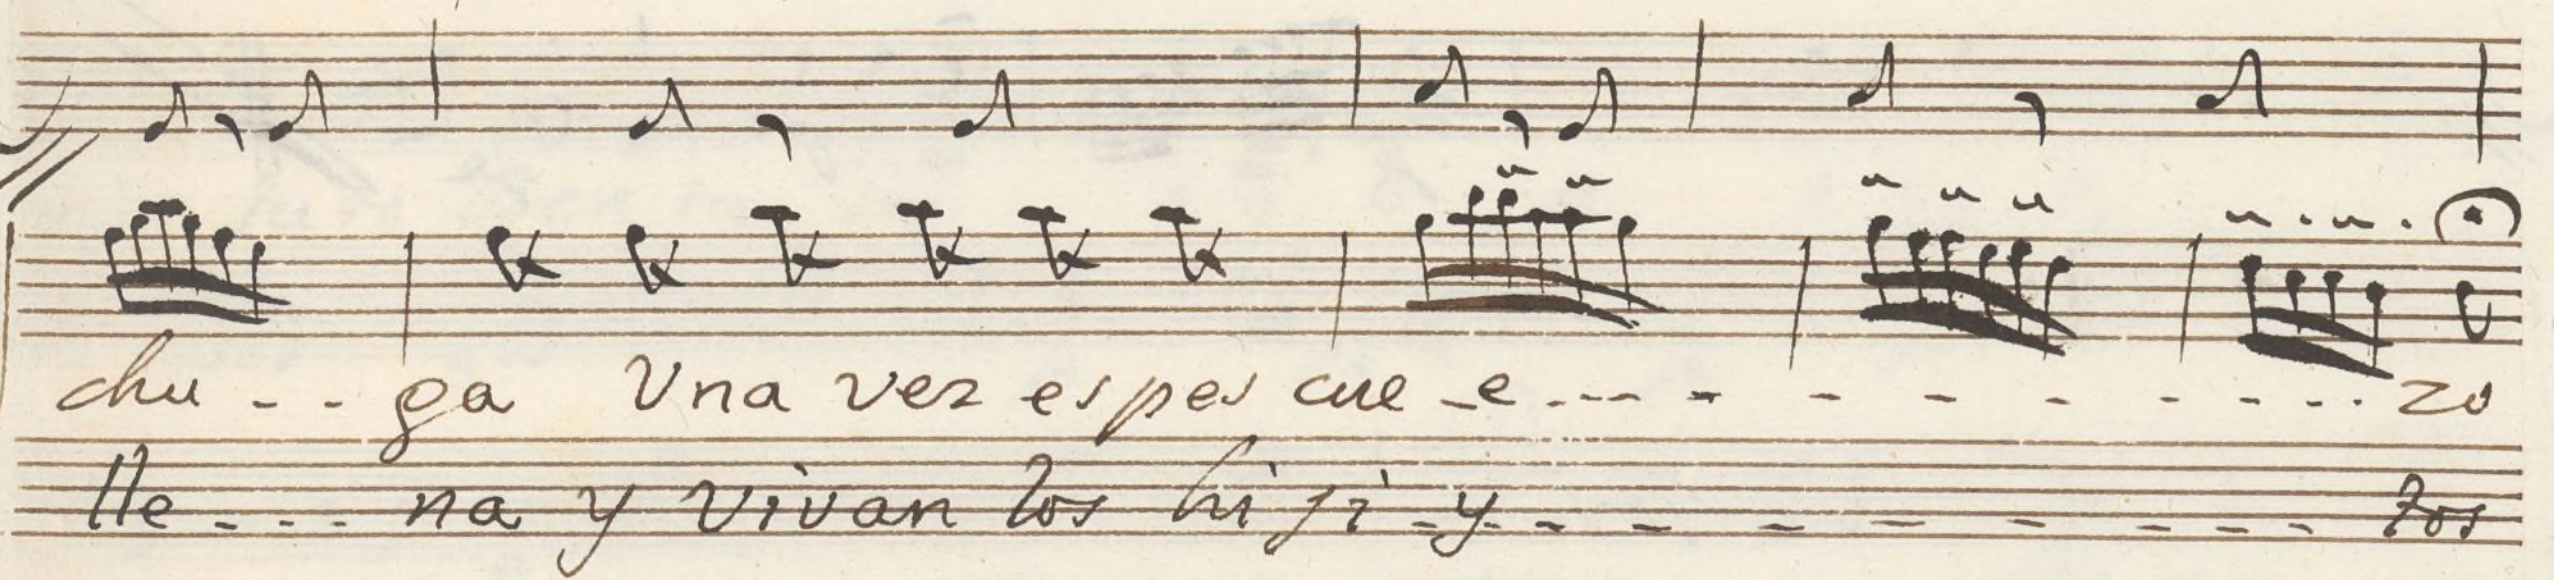 chu - - ga Vna vez es pes cue - e - - - - - - - - - - - - zo
lle - - - - na y vivan los hi ji - y - - - - - - - - - - tos